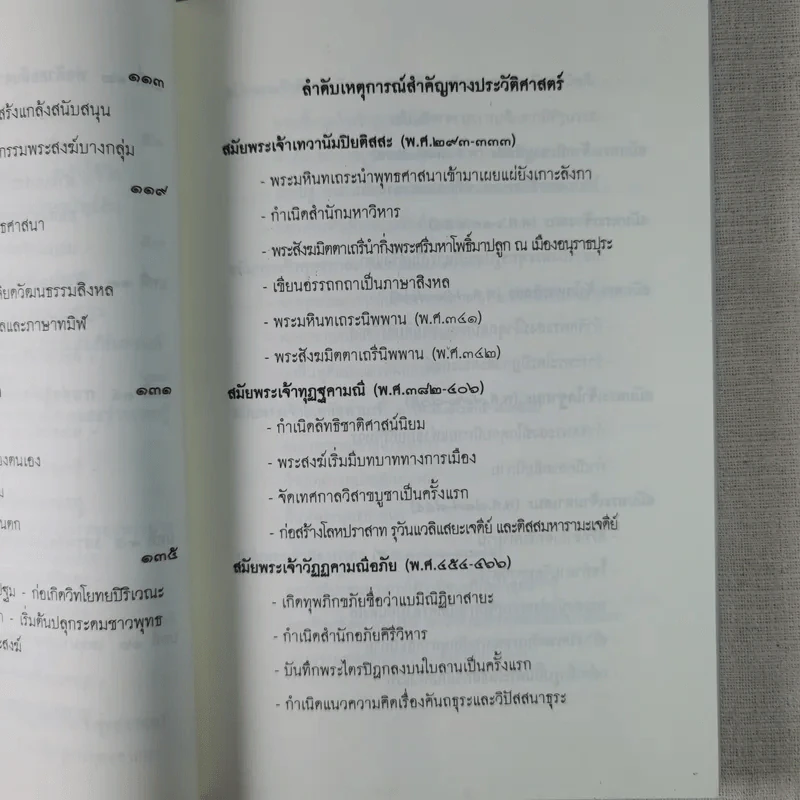 ๑๑๓
สร้งแกล้งสนับสนุน
กรรมพระสงฆ์บางกลุ่ม
๑๑๙
ธศาสนา
วัฒนธรรมสิงหล
และภาษาทมิฬ
๑๓๑
งตนเอง
นตก
๑๓๕
ปฐม - ก่อเกิดวิทโยทยปิริเวณะ
- เริ่มต้นปลุกระดมชาวพุทธ
ะสงฆ์
ลำดับเหตุการณ์สำคัญทางประวัติศาสตร์
สมัยพระเจ้าเทวานัมปิยติสสะ (พ.ศ.๒๙๓-๓๓๓)
- พระมหินทเถระนำพุทธศาสนาเข้ามาเผยแผ่ยังเกาะลังกา
- กำเนิดสำนักมหาวิหาร
- พระสังฆมิตตาเถรีนำกิ่งพระศรีมหาโพธิ์มาปลูก ณ เมืองอนุราธปุระ
- เขียนอรรถกถาเป็นภาษาสิงหล
- พระมหินทเถระนิพพาน (พ.ศ.๓๔๑)
- พระสังฆมิตตาเถรีนิพพาน (พ.ศ.๓๔๒)
สมัยพระเจ้าทุฏฐคามณี (พ.ศ.๓๘๒-๔๐๖)
- กำเนิดลัทธิชาติศาสน์นิยม
- พระสงฆ์เริ่มมีบทบาททางการเมือง
- จัดเทศกาลวิสาขบูชาเป็นครั้งแรก
- ก่อสร้างโลหปราสาท รุวันแวลิแสยะเจดีย์ และติสสมหารามะเจดีย์
สมัยพระเจ้าวัฏฏคามณีอภัย (พ.ศ.๔๕๔-๔๖๖)
- เกิดทุพภิกขภัยชื่อว่าแบมิณิฏิยาสายะ
- กำเนิดสำนักอภัยคีรีวิหาร
- บันทึกพระไตรปิฎกลงบนใบลานเป็นครั้งแรก
- กำเนิดแนวความคิดเรื่องคันถธุระและวิปัสสนาธุระ